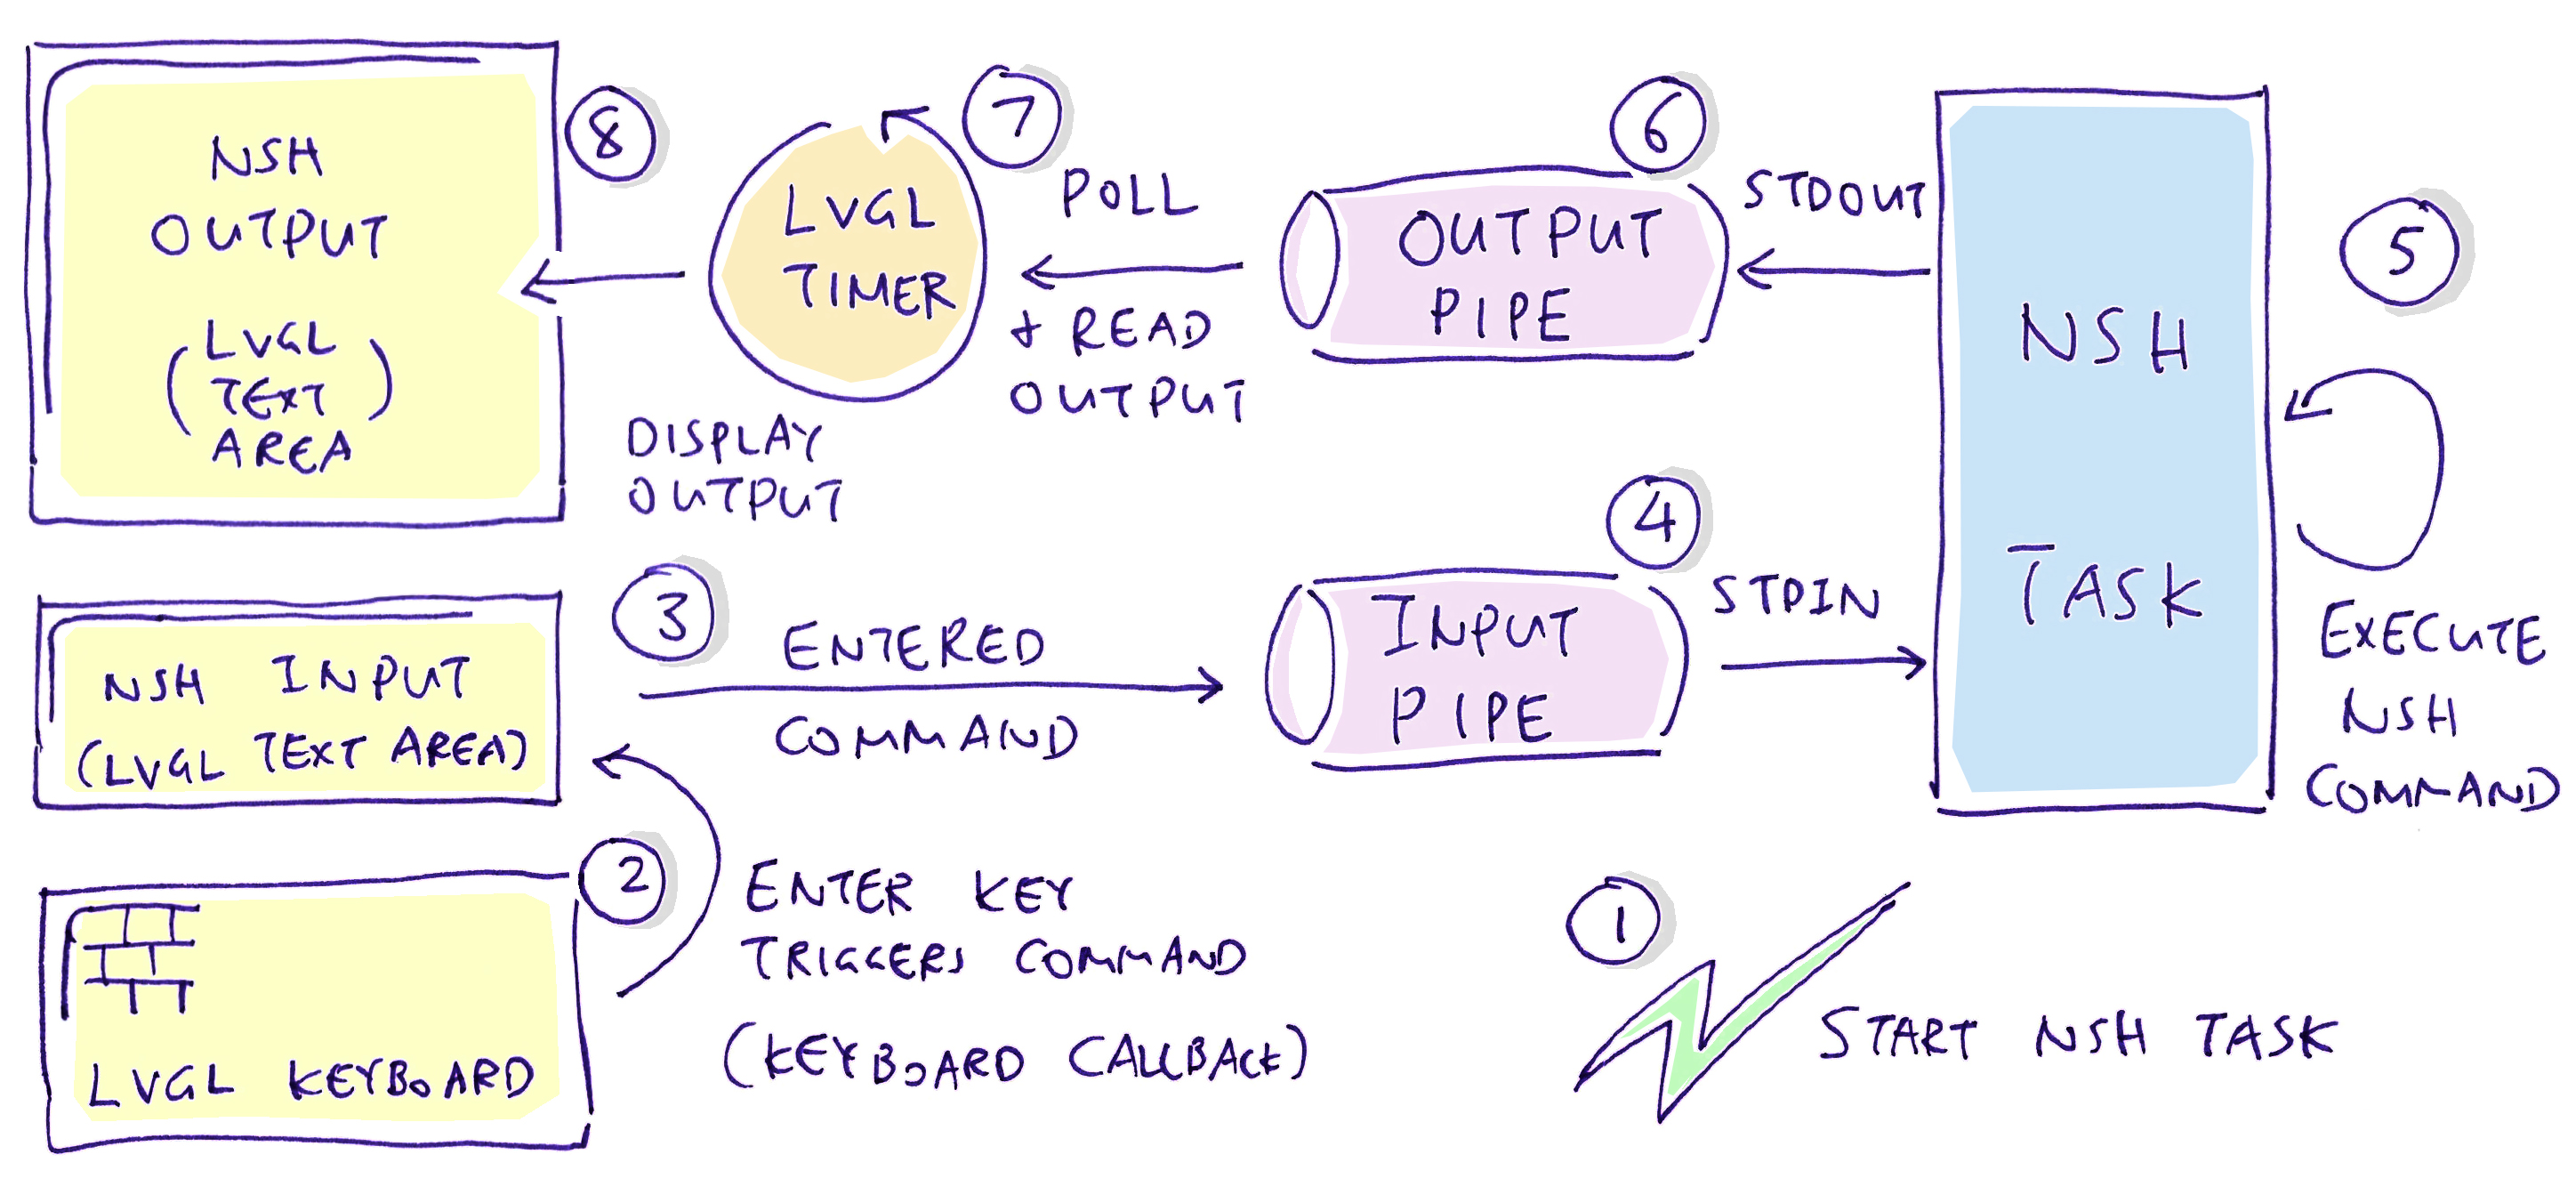 NSH
OUTPUT
(LVGL
TEXT
AREA)
8
LVGL
TIMER
DISPLAY
OUTPUT
7
POLL
+ READ
OUTPUT
6
OUTPUT
PIPE
STDOUT
NSH
TASK
5
EXECUTE
NSH
COMMAND
NSH INPUT
(LVGL TEXT AREA)
3
ENTERED
COMMAND
4
INPUT
PIPE
STDIN
LVGL KEYBOARD
2
ENTER KEY
TRIGGERS COMMAND
(KEYBOARD CALLBACK)
1
START NSH TASK